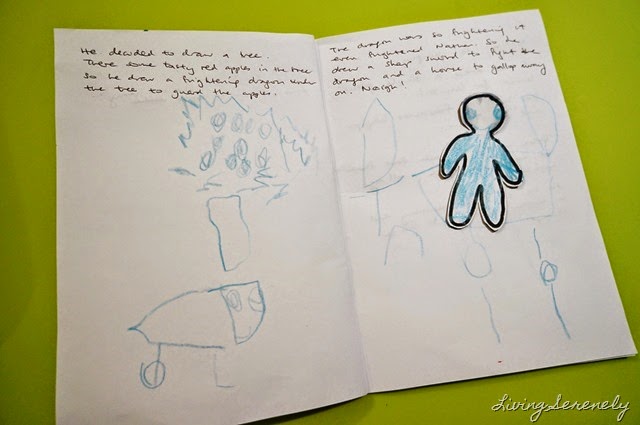 He decided to draw a tree.
There some tasty red apples in the tree
so he drew a frightening dragon under
the tree to guard the apples.
The dragon was so frightening it
even frightened Nathan. So he
drew a sharp sword to fight the
dragon and a horse to gallop away
on. Neigh!
LivingSerenely